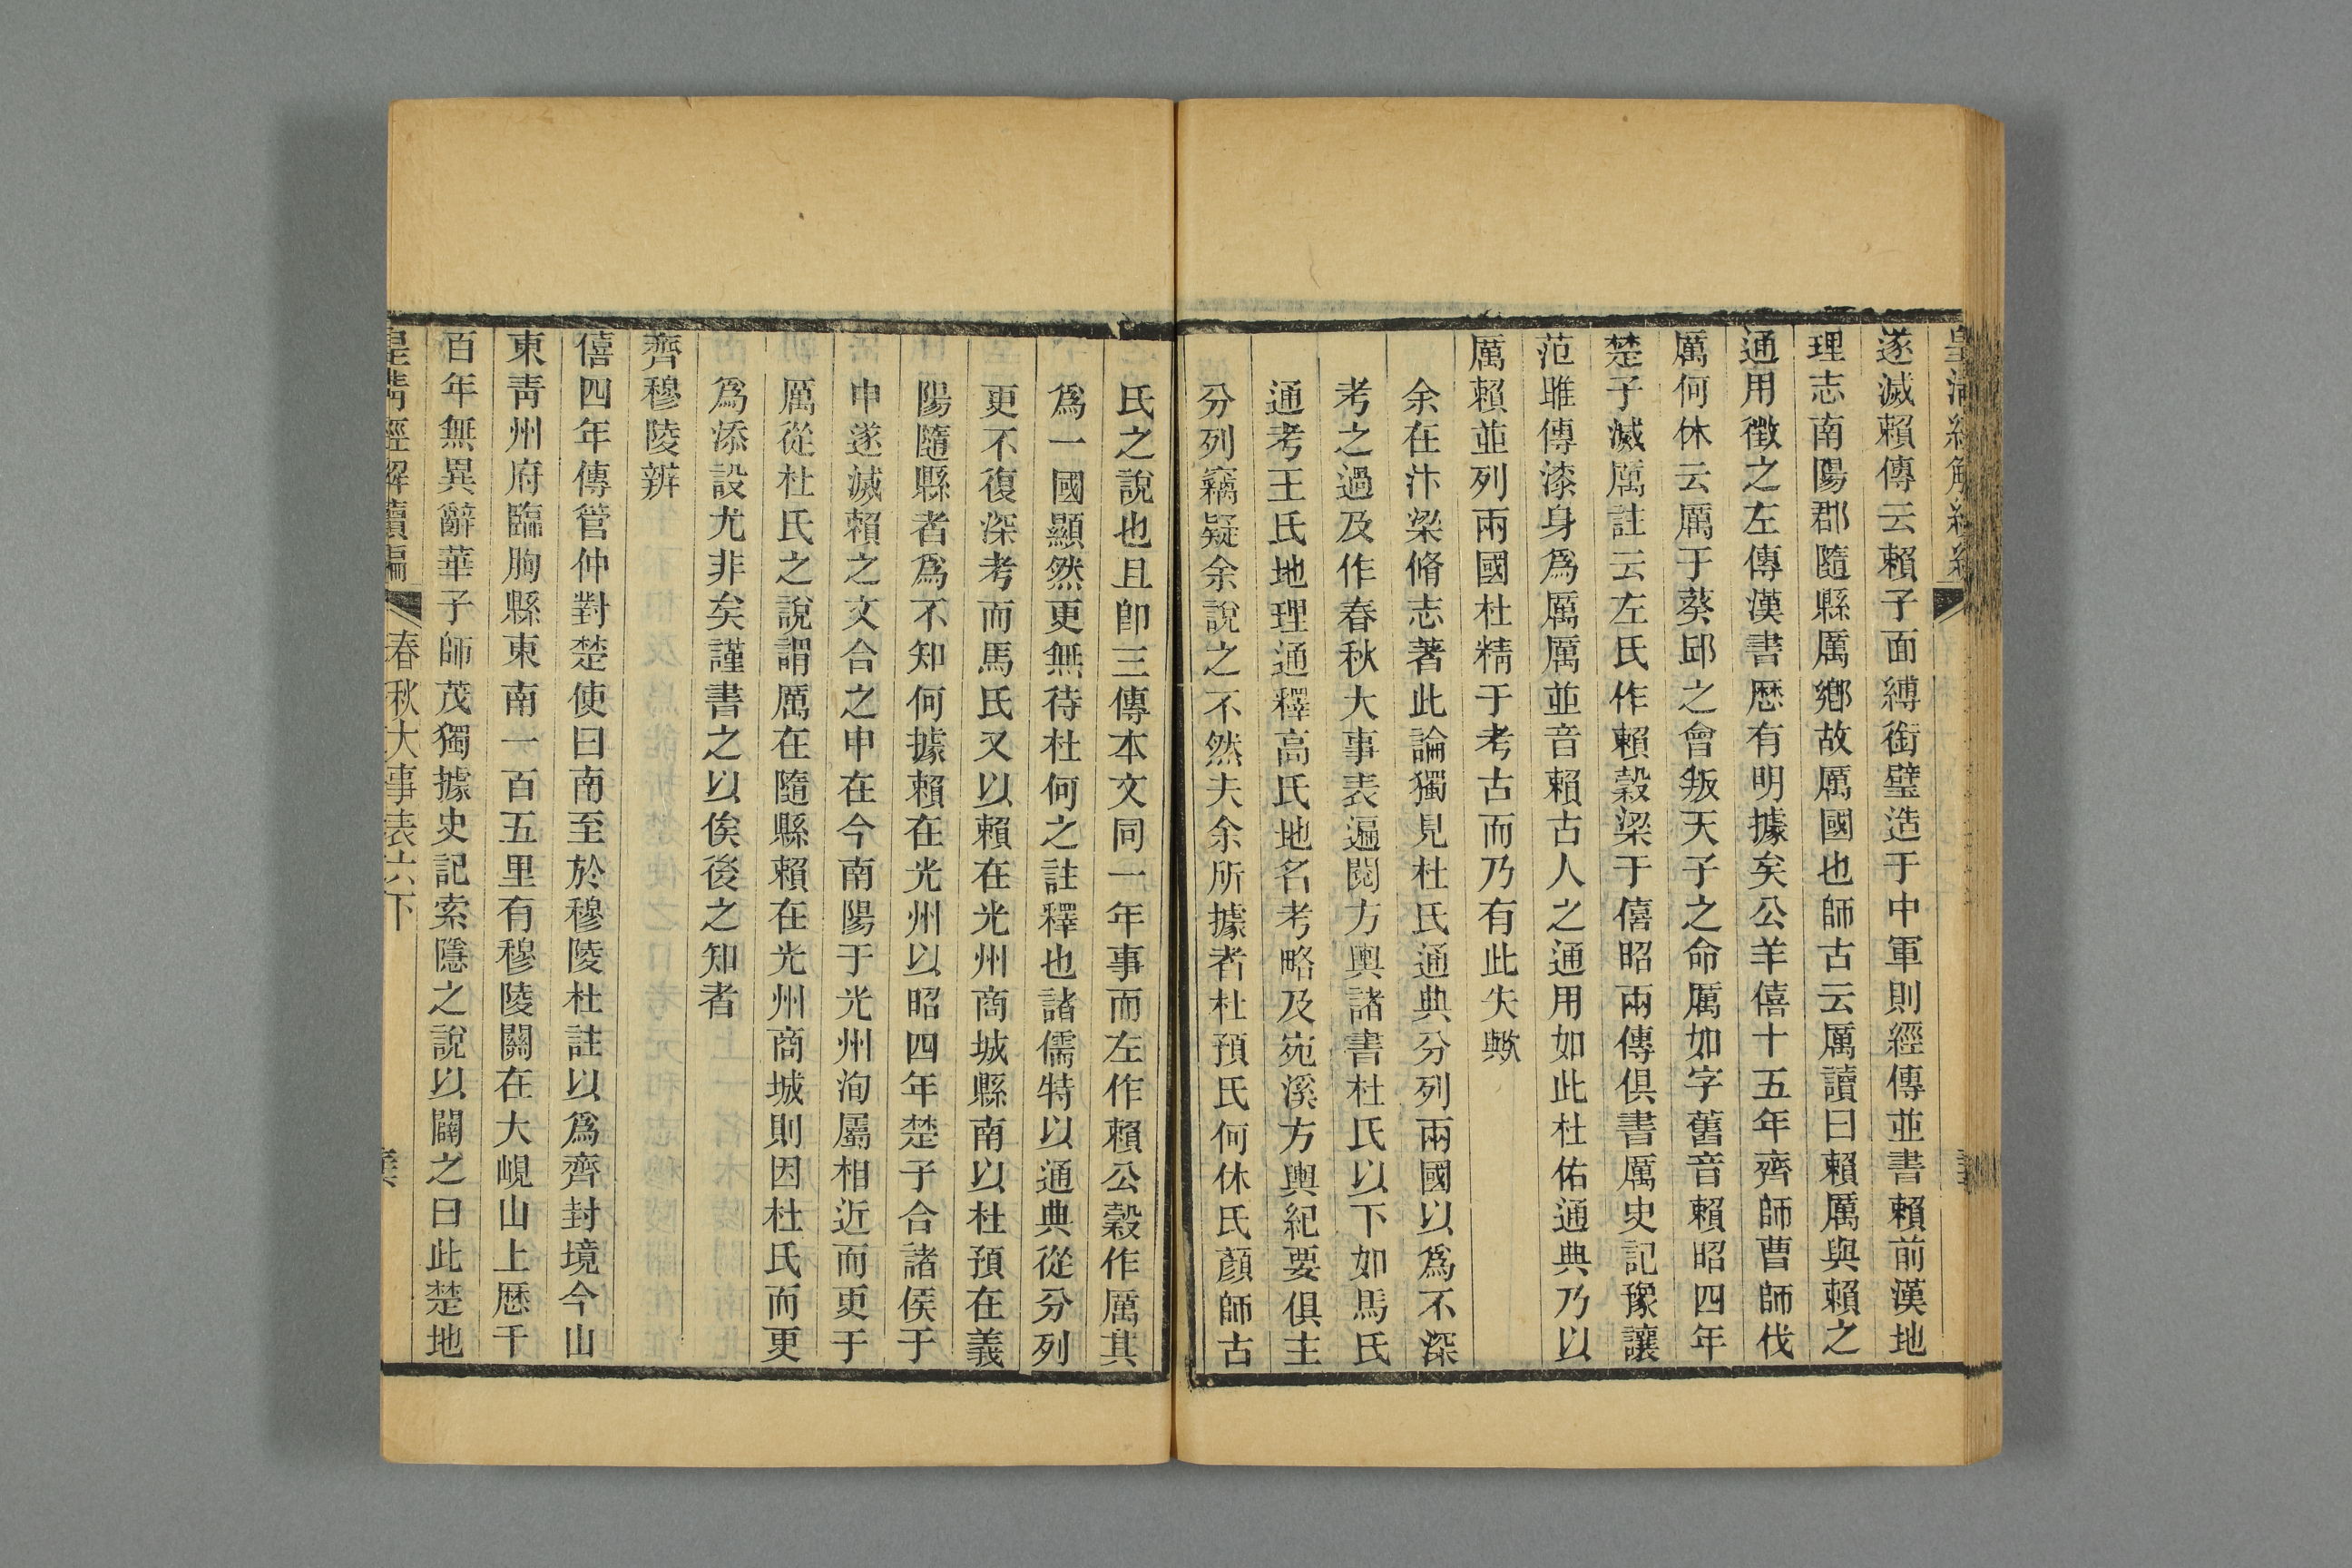 遂滅賴傳云賴子面縛銜璧造于中軍則經傳並書賴前漢地
理志南陽郡隨縣厲鄉故厲國也師古云厲讀曰賴厲與賴之
通用徵之左傳漢書歷有明據矣公羊僖十五年齊師曹師伐
厲何休云厲于葵邱之會叛天子之命厲如字舊音賴昭四年
楚子滅厲註云左氏作賴穀梁于僖昭兩傳俱書厲史記豫讓
范雎傳漆身爲厲厲並音賴古人之通用如此杜佑通典乃以
厲賴並列兩國杜精于考古而乃有此失歟
余在汴梁脩志著此論獨見杜氏通典分列兩國以爲不深
考之過及作春秋大事表遍閱方輿諸書杜氏以下如馬氏
通考王氏地理通釋高氏地名考略及宛溪方輿紀要俱主
分列竊疑余說之不然夫余所據者杜預氏何休氏顏師古
氏之說也且卽三傳本文同一年事而左作賴公穀作厲其
爲一國顯然更無待杜何之註釋也諸儒特以通典從分列
更不復深考而馬氏又以賴在光州商城縣南以杜預在義
陽隨縣者爲不知何據賴在光州以昭四年楚子合諸侯于
申遂滅賴之文合之申在今南陽于光州洵屬相近而更于
厲從杜氏之說謂厲在隨縣賴在光州商城則因杜氏而更
爲添設尤非矣謹書之以俟後之知者
齊穆陵辨
僖四年傳管仲對楚使曰南至於穆陵杜註以爲齊封境今山
東靑州府臨朐縣東南一百五里有穆陵關在大峴山上歷千
百年無異辭華子師茂獨據史記索隱之說以闢之曰此楚地
皇淸經解續編
春秋大事表六下